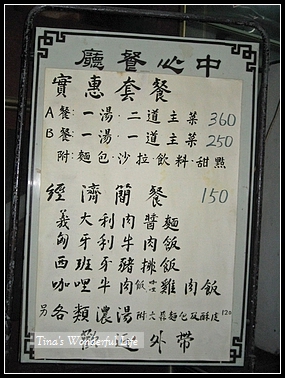 中心餐廳
實惠套餐
A餐:一湯·二道主菜 360
B餐:一湯·一道主菜 250
附:麵包·沙拉飲料·甜點
經濟簡餐 150
義大利肉醬麵
匈牙利牛肉飯
西班牙豬排飯
咖哩牛肉飯 咖哩雞肉飯
另各類濃湯附大蒜麵包及酥皮120
歡迎外帶
Tina's Wonderful Life